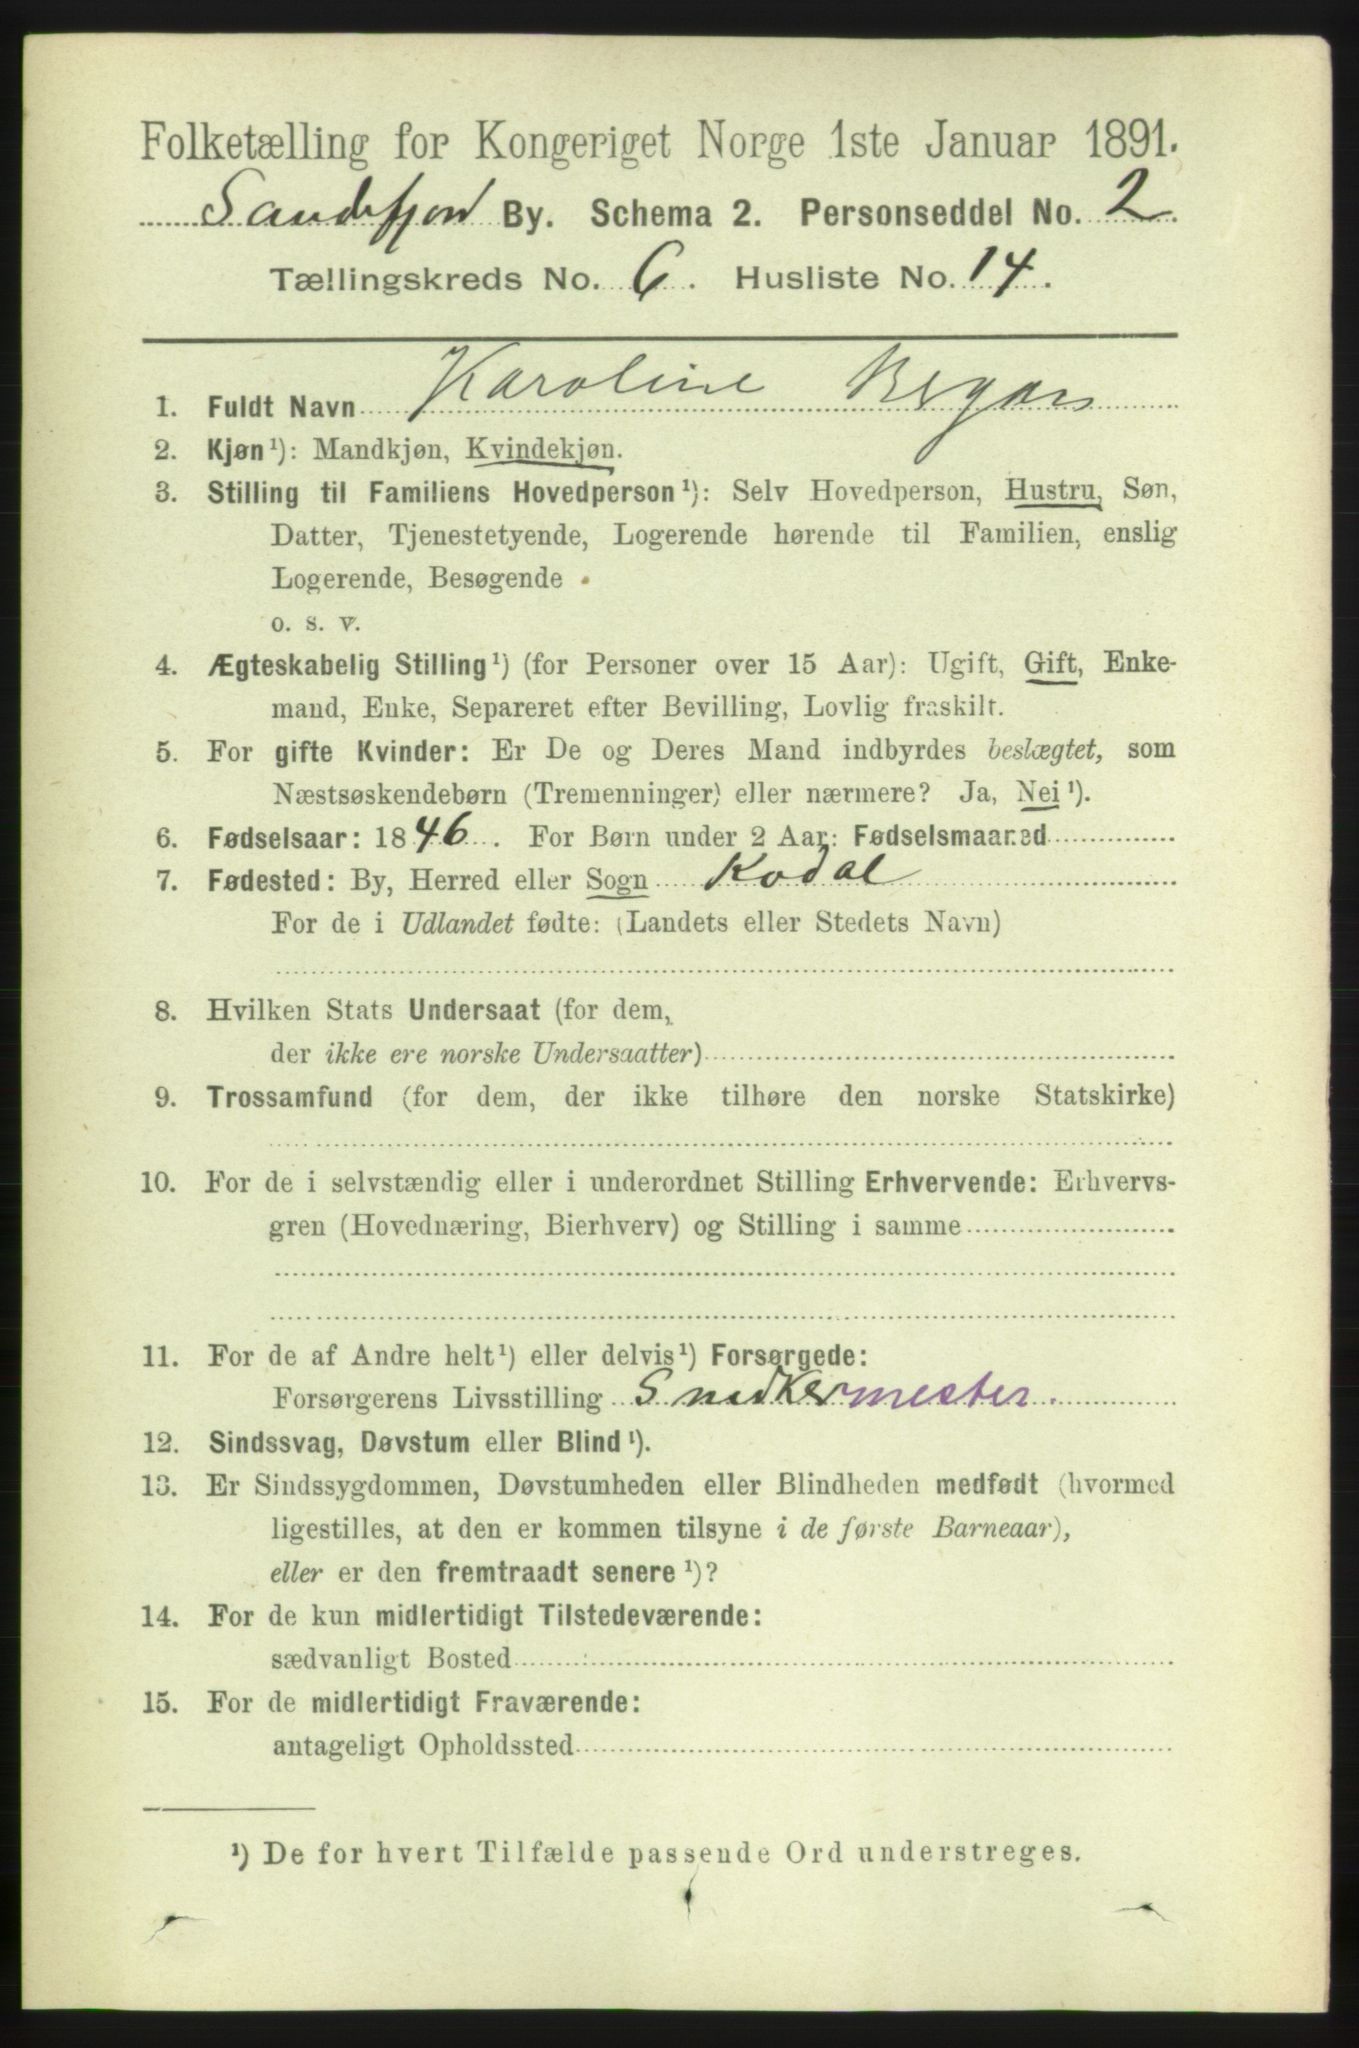 Folketælling for Kongeriget Norge 1ste Januar 1891.
Sandefjord By. Schema 2. Personseddel No. 2.
Tællingskreds No. 6. Husliste No. 14.
1. Fuldt Navn Karoline
2. Kjøn¹): Mandkjøn, Kvindekjøn.
3. Stilling til Familiens Hovedperson¹): Selv Hovedperson, Hustru, Søn,
Datter, Tjenestetyende, Logerende hørende til Familien, enslig
Logerende, Besøgende
o. s. v.
4. Ægteskabelig Stilling¹) (for Personer over 15 Aar): Ugift, Gift, Enke-
mand, Enke, Separeret efter Bevilling, Lovlig fraskilt.
5. For gifte Kvinder: Er De og Deres Mand indbyrdes beslægtet, som
Næstsøskendebørn (Tremenninger) eller nærmere? Ja, Nei¹).
6. Fødselsaar: 1846. For Børn under 2 Aar: Fødselsmaaned
7. Fødested: By, Herred eller Sogn Kodal
For de i Udlandet fødte: (Landets eller Stedets Navn)
8. Hvilken Stats Undersaat (for dem,
der ikke ere norske Undersaatter)
9. Trossamfund (for dem, der ikke tilhøre den norske Statskirke)
10. For de i selvstændig eller i underordnet Stilling Erhvervende: Erhvervs-
gren (Hovednæring, Bierhverv) og Stilling i samme
11. For de af Andre helt¹) eller delvis¹) Forsørgede:
Forsørgerens Livsstilling Snedkermester.
12. Sindssvag, Døvstum eller Blind¹).
13. Er Sindssygdommen, Døvstumheden eller Blindheden medfødt (hvormed
ligestilles, at den er kommen tilsyne i de første Barneaar),
eller er den fremtraadt senere¹)?
14. For de kun midlertidigt Tilstedeværende:
sædvanligt Bosted
15. For de midlertidigt Fraværende:
antageligt Opholdssted
¹) De for hvert Tilfælde passende Ord understreges.